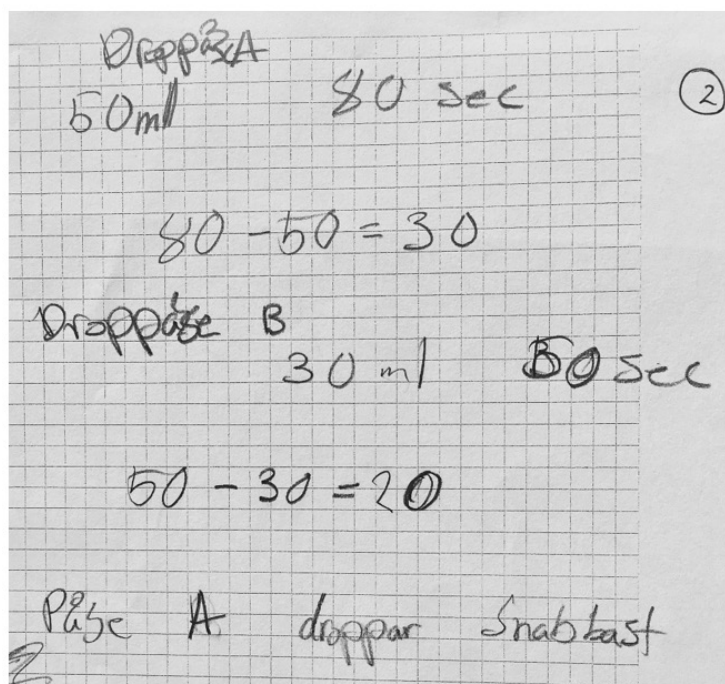 Droppåse A
50 ml 80 sec
2
80 - 50 = 30
Droppåse B
30 ml 50 sec
50 - 30 = 20
Påse A droppar snabbast